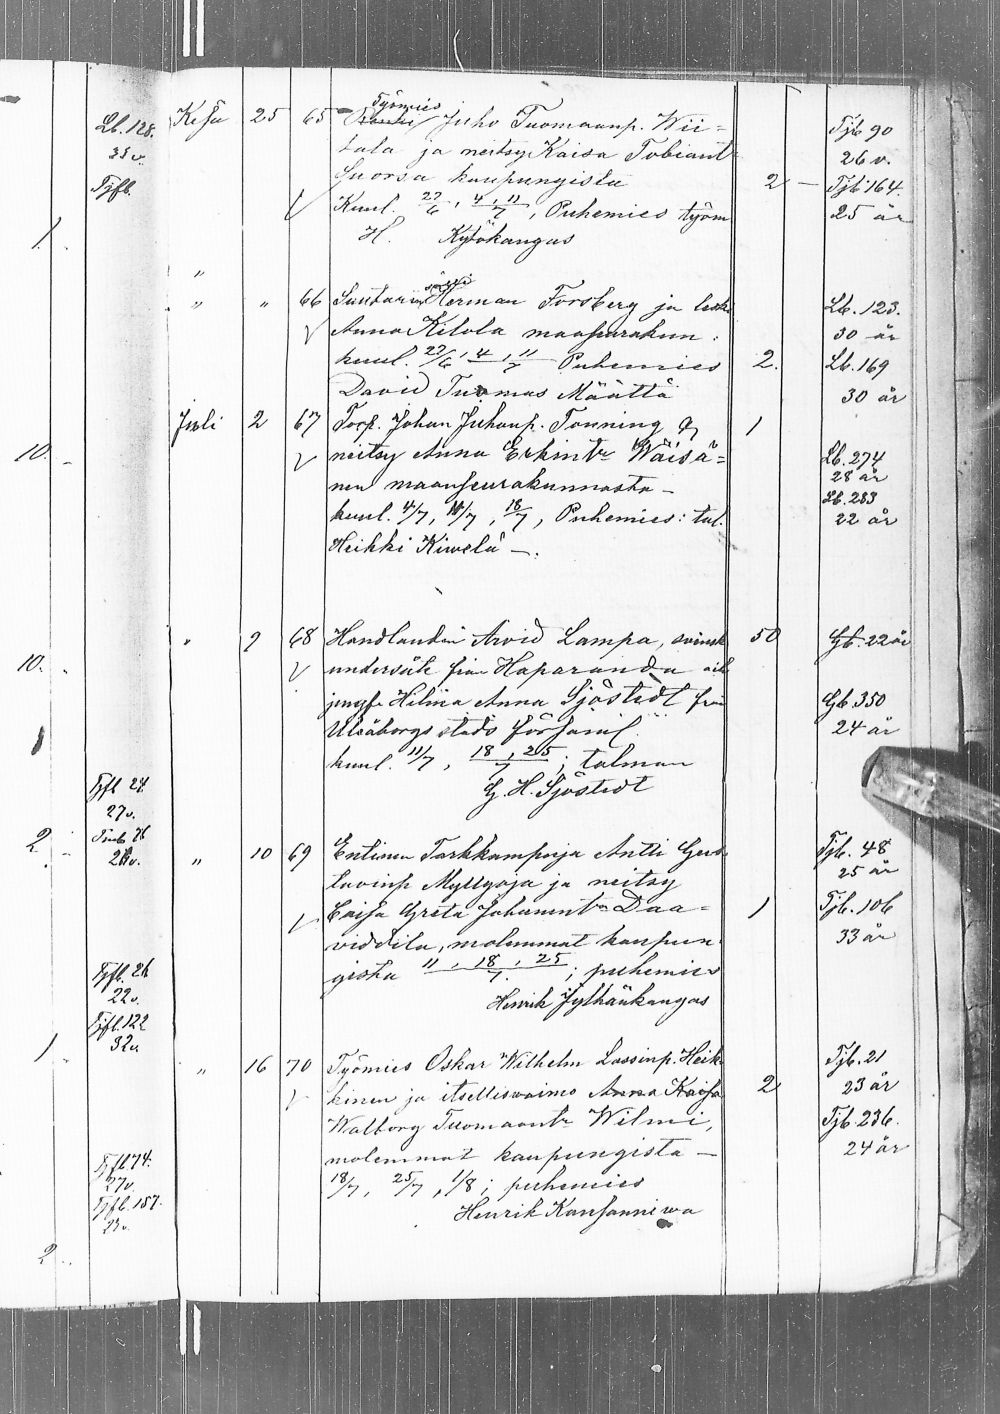 Lb. 128.
35 v.
Tjfb.
1.
Kesä 25 65 Työmies
Renki Juho Tuomaanp. Wii=
tala ja neitsy Kaisa Tobiaant
Suorsa kaupungista 2 —
Kuul. 27/6, 4, 11/7, Puhemies työm
H. Kylökangas
Tjb 90
26 v.
Tjb 164.
25 år
"
" " 66 Suutarin Herman Forsberg ja leski
Anna Kilola maaseurakun.
kuul. 27/6, 4, 11/7 Puhemies 2.
David Tuomas Määttä
Lb. 123.
30 år
Lb. 169
30 år
10. -
Juli 2 67 Torp. Johan Juhanp. Tonning & 1
neitsy Anna Erkintr Wäisä=
nen maaseurakunnasta —
kuul. 4/7, 11/7, 18/7, Puhemies: tal.
Heikki Kiwelä —.
Lb. 274
28 år
Lb. 283
22 år
10.
" 9 68 Handlanden Arvid Lampa, svensk 50
undersåte från Haparanda och
jungfr Hilma Anna Sjöstedt från
Uleåborgs stads församl.
kuul. 11/7, 18, 25/7; talman
G. H. Sjöstedt
Gb. 22 år
Gb 350
24 år
Tjfl 24
27 v.
2
" 10 69 Entinen Tarkkampuja Antti Gus
tavinp Myllyoja ja neitsy
Caisa Greta Johanint Daa= 1
viddila, molemmat kaupun
gista 11, 18, 25/7.; puhemies
Henrik Jylhänkangas
Tjb. 48
25 år
Tjb. 106
33 år
Tjfl. 26
22 v.
Tjfl. 122
32 v
1
" 16 70 Työmies Oskar Wilhelm Lassinp. Heik
kinen ja itselliswaimo Anna Kaisa 2
Walborg Tuomaantr Wilmi,
molemmat kaupungista —
18/7, 25/7, 1/8; puhemies
Henrik Kansanniwa
Tjb. 21
23 år
Tjb. 236.
24 år
Tjfl. 74.
27 v.
Tjfl. 157.
23 v.
2